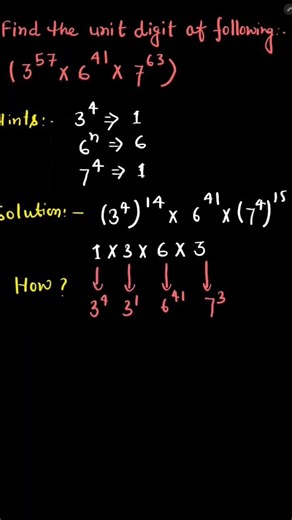 Find the unit digit of following:-
(3⁵⁷ × 6⁴¹ × 7⁶³)
Hints:- 3⁴ ⇒ 1
6ⁿ ⇒ 6
7⁴ ⇒ 1
Solution:- (3⁴)¹⁴ × 6⁴¹ × (7⁴)¹⁵
1 × 3 × 6 × 3
How? ↓ ↓ ↓ ↓
3⁴ 3¹ 6⁴¹ 7³